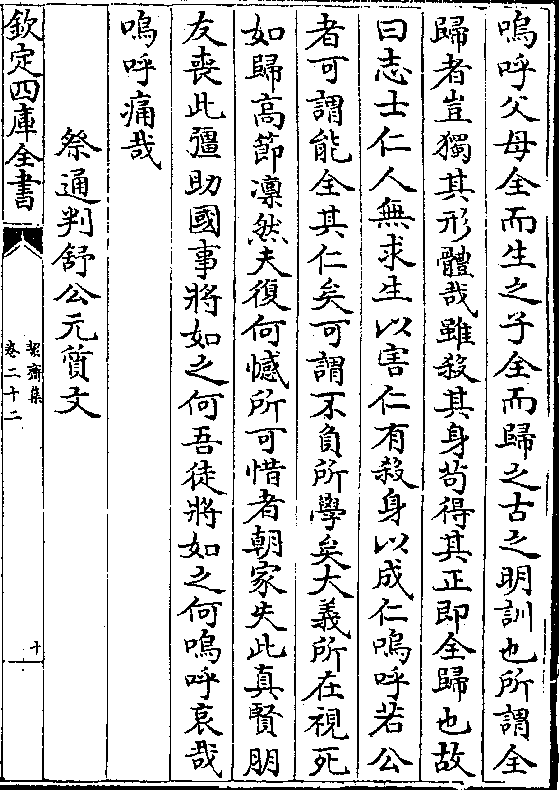 嗚呼父母全而生之子全而歸之古之明訓也所謂全
歸者豈獨其形體哉雖殺其身茍得其正即全歸也故
曰志士仁人無求生以害仁有殺身以成仁嗚呼若公
者可謂能全其仁矣可謂不負所學矣大義所在視死
如歸高節凛然夫復何憾所可惜者朝家失此真賢朋
友喪此彊助國事將如之何吾徒將如之何嗚呼哀哉
嗚呼痛哉
祭通判舒公元質文
欽定四庫全書
絜齋集
卷二十二
十